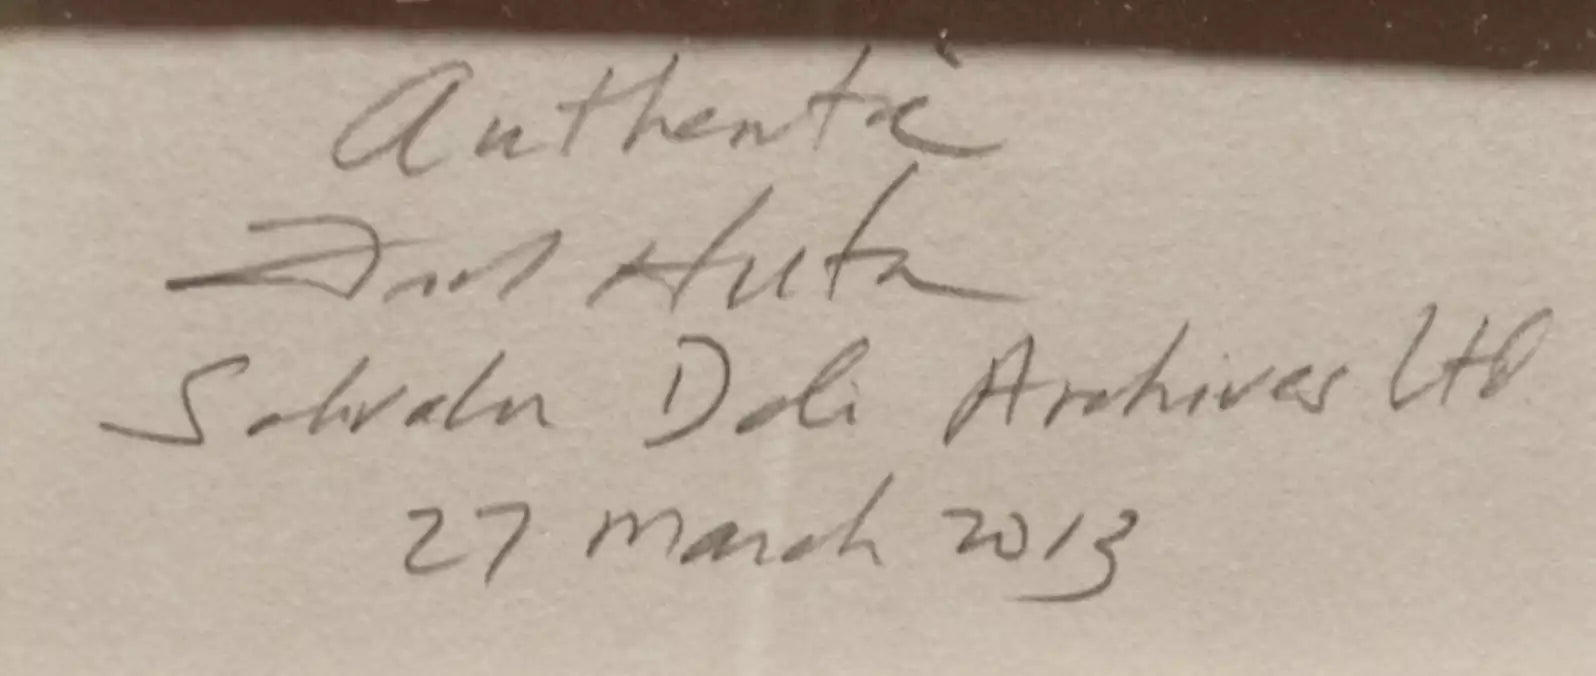 Authentic
Frank Hunter
Salvador Dali Archives Ltd
27 March 2013